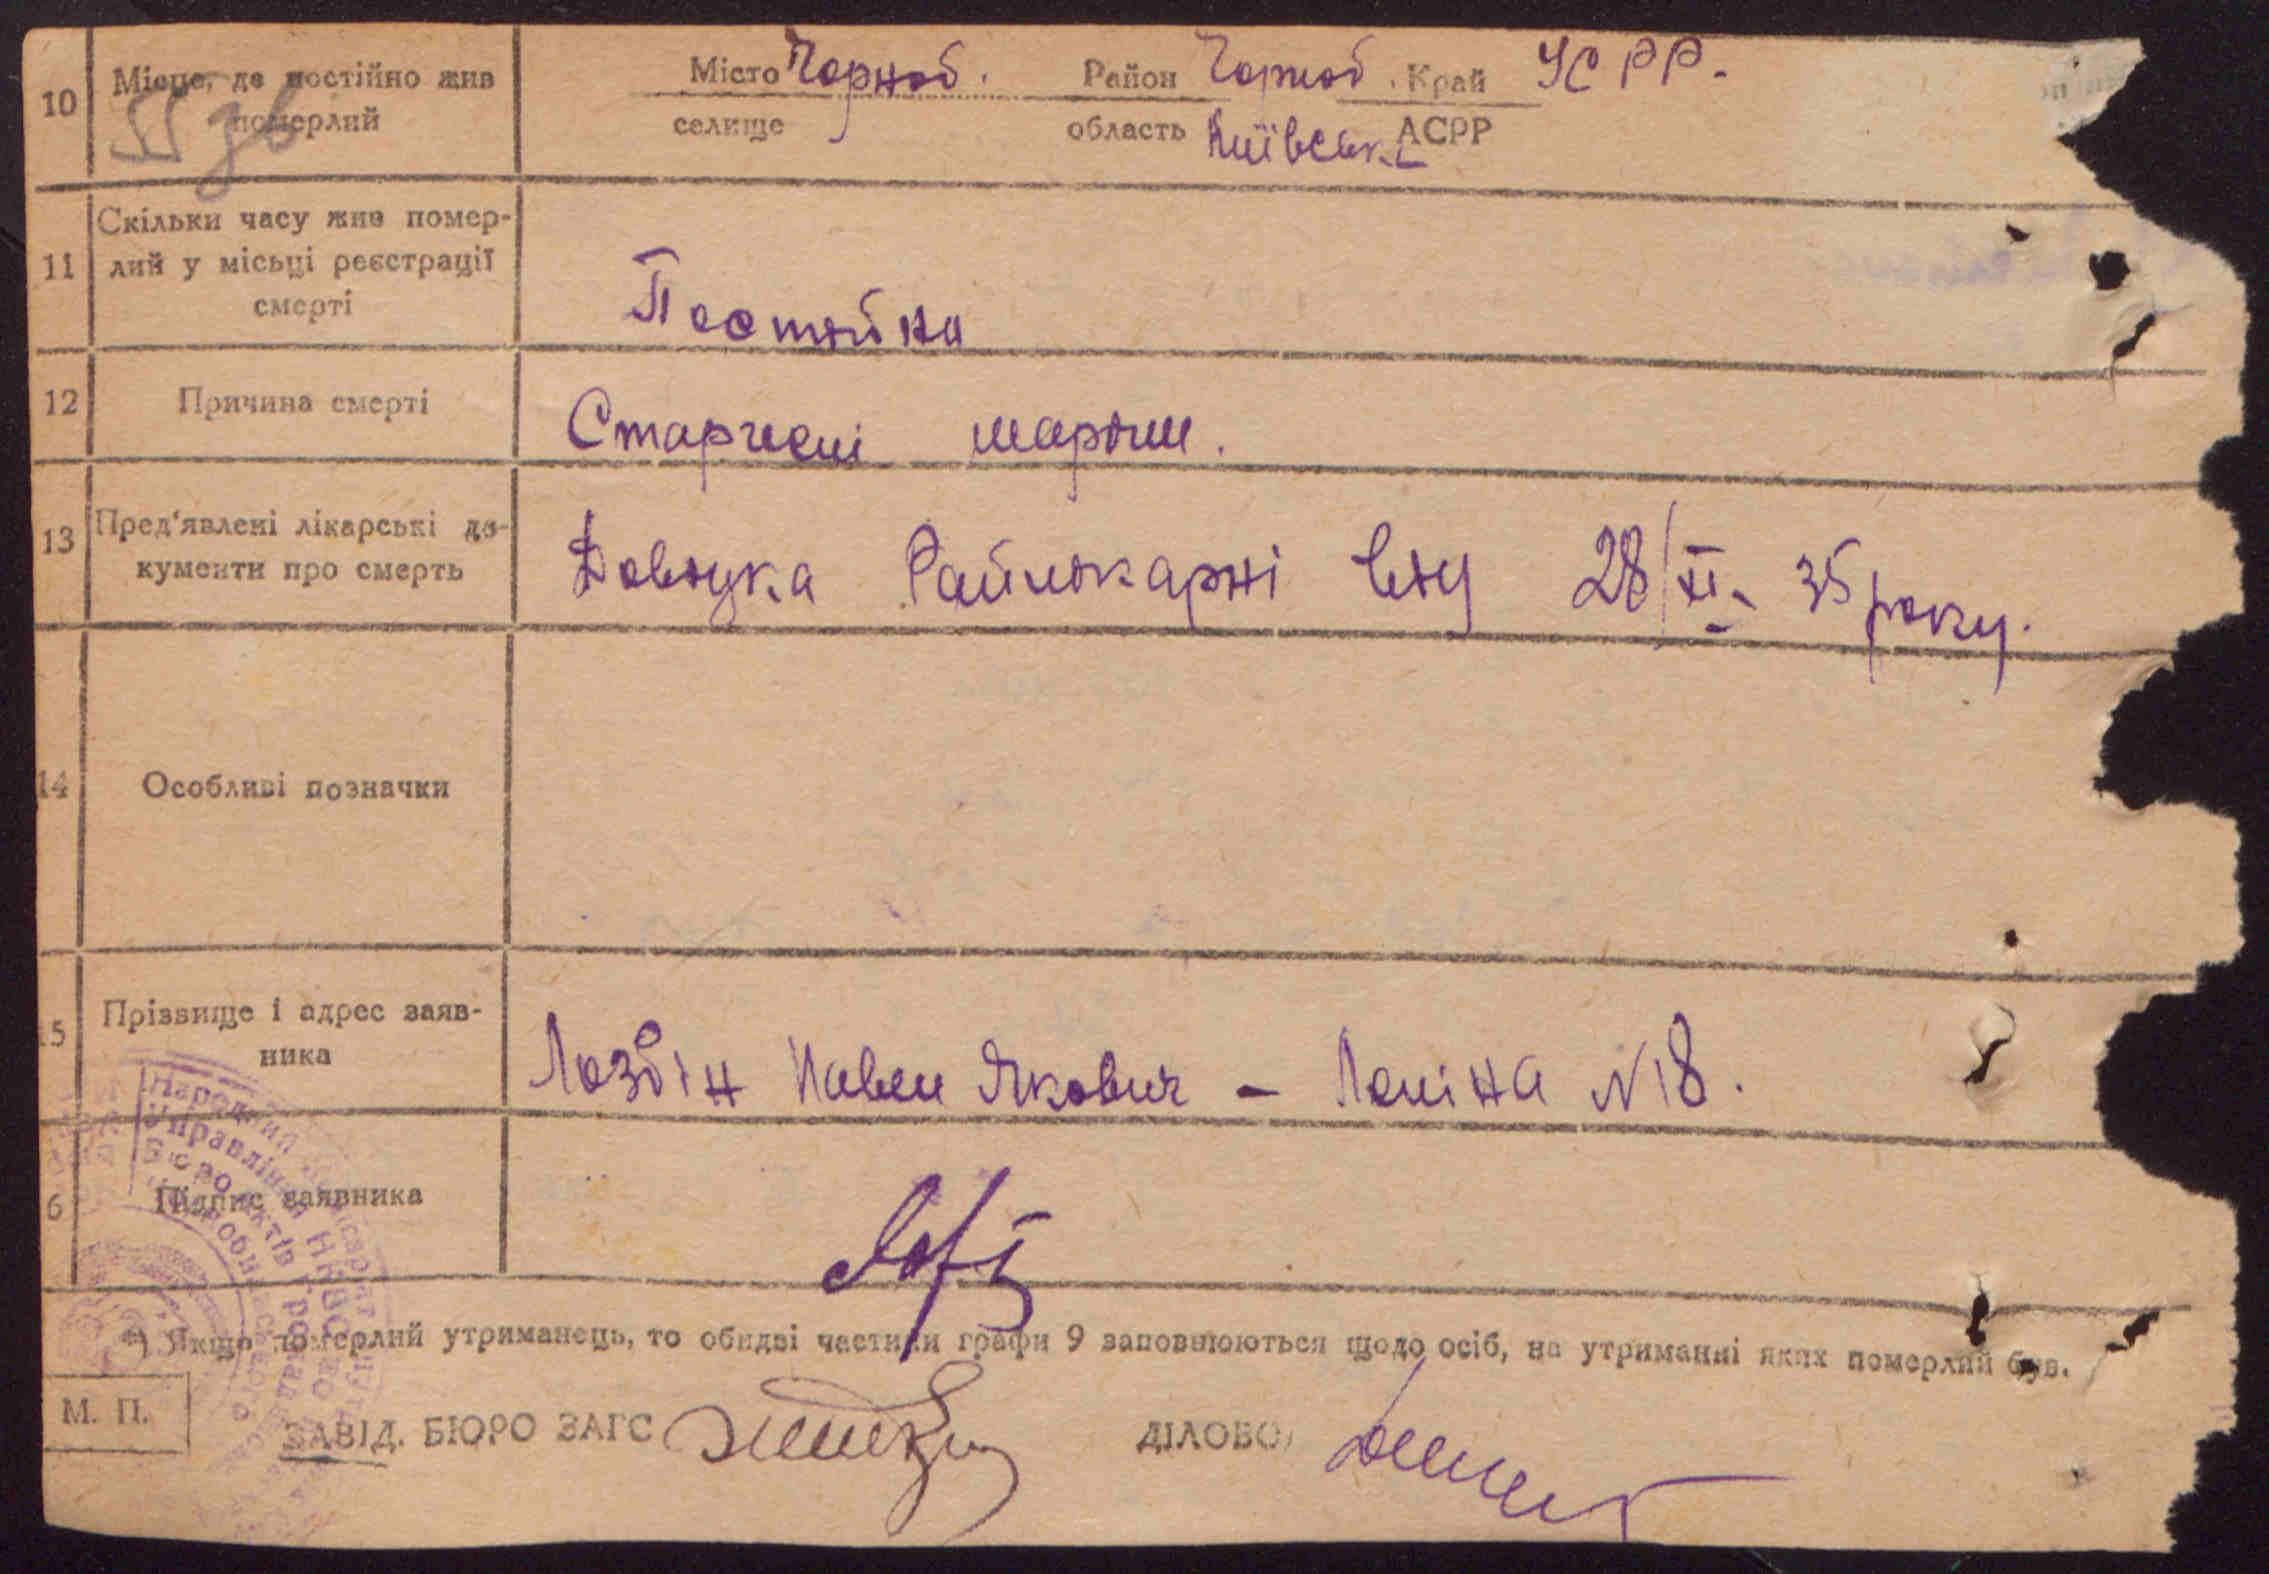 10 Місце, де постійно жив померлий
Місто Чорноб. Район Чорноб. Край УСРР.
селище область Київськ. АСРР
11 Скільки часу жив помер-
лий у місьці реєстрації
смерті
Постійно
12 Причина смерті
Старчені
13 Пред'явлені лікарські до-
кументи про смерть
Довідка Райлікарні від 28/XI-35 року.
14 Особливі позначки
15 Прізвище і адрес заяв-
ника
Лозбін Павел Якович - Леніна N 18.
6 Підпис заявника
*) Якщо померлий утриманець, то обидві частини графи 9 заповнюються щодо осіб, на утриманні яких померлий був.
М. П.
ЗАВІД. БЮРО ЗАГС
ДІЛОВОД
Народний
Управління НКВС
Бюро Актів Громад